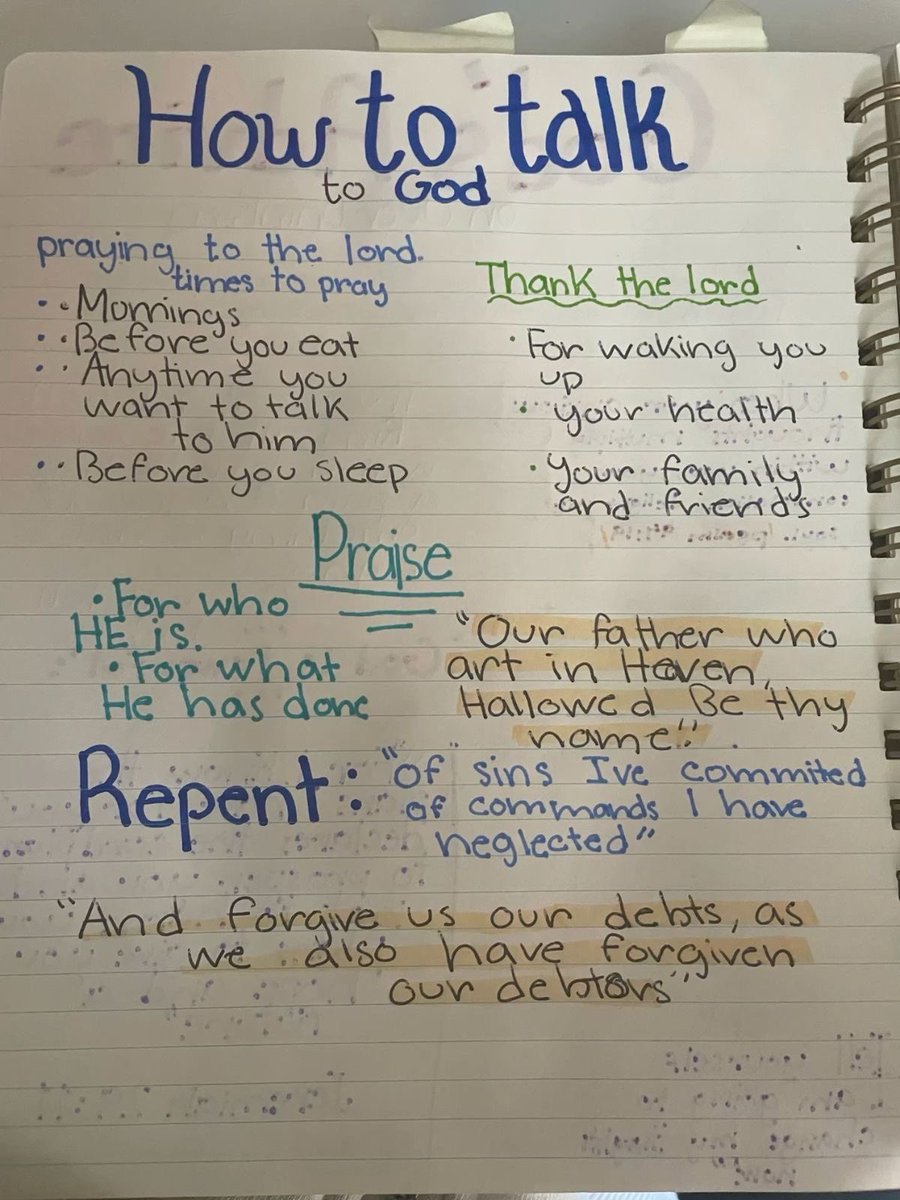 How to talk
to God
praying to the lord.
times to pray
• • Mornings
• • Before you eat
• • Anytime you
want to talk
to him
• • Before you sleep
Thank the lord
• For waking you
up
• your health
• Your family
and friends
Praise
• For who
HE is.
• For what
He has done
"Our father who
art in Heven,
Hallowed Be thy
name".
Repent: "of sins Ive commited
of commands I have
neglected"
"And forgive us our debts, as
we also have forgiven
our debtors"